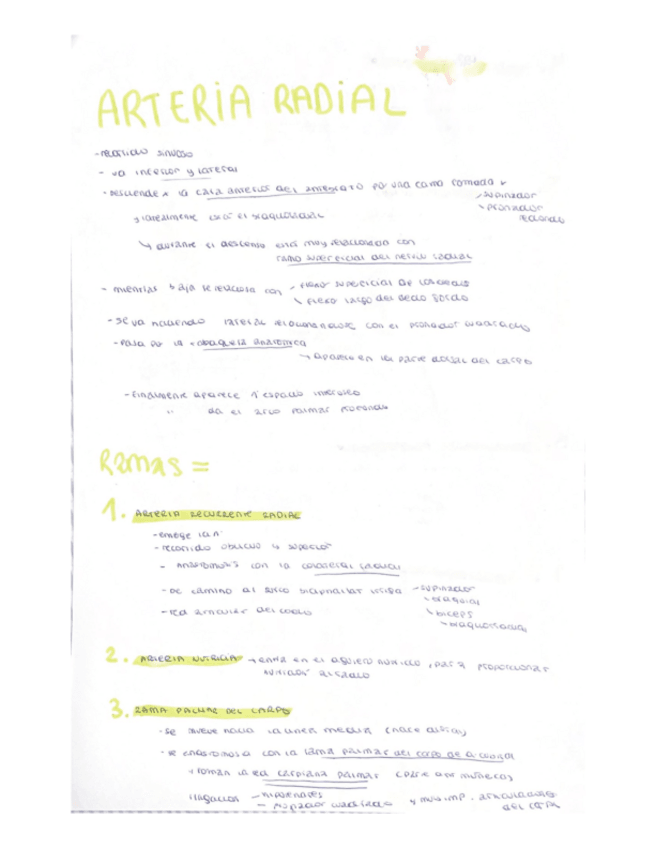 ARTERIA RADIAL
- recorrido sinuoso
- va inferior y lateral
- desciende x la cara anterior del antebrazo por una cama formada x
supinador
pronador redondo
lateralmente está el braquiorradial
durante el descenso está muy relacionada con
ramo superficial del nervio radial
- mientras baja se relaciona con - flexor superficial de los dedos
flexor largo del dedo gordo
- se va haciendo lateral relacionandose con el pronador cuadrado
- Pasa por la tabaquera anatómica
aparece en la parte dorsal del carpo
- Finalmente aparece 1º espacio interóseo
" da el arco palmar profundo
Ramas =
1. ARTERIA RECURRENTE RADIAL
- emerge la 1ª
- recorrido oblicuo y superior
- Anastomosis con la colateral radial
- De camino al surco bicipital irriga - supinador
braquial
biceps
braquiorradial
- red articular del codo
2. ARTERIA NUTRICIA → entra en el agujero nutricio, para proporcionar
nutrición al radio
3. RAMA PALMAR DEL CARPO
- se mueve hacia la línea media (nace distal)
- se anastomosa con la rama palmar del carpo de a. cubital
forman la red carpiana palmar (parte ant muñeca)
irrigación - hipotenares
- pronador cuadrado y articulaciones
del carpo